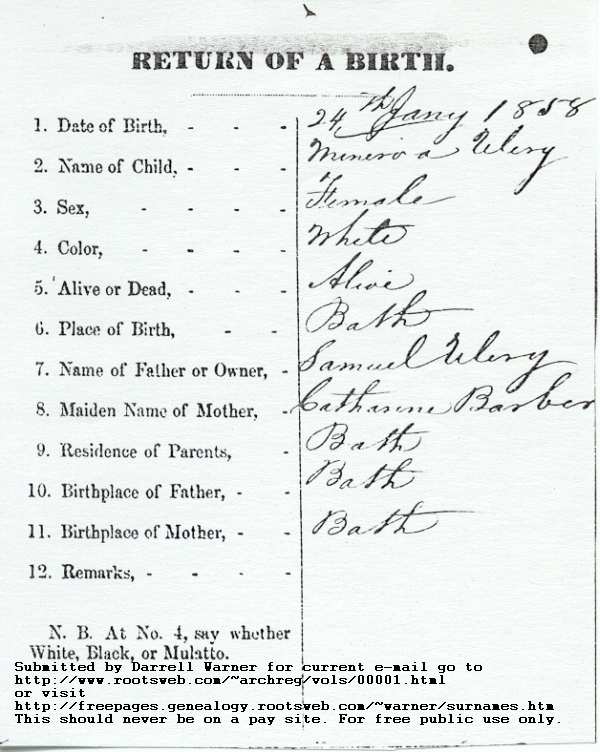 RETURN OF A BIRTH.
1. Date of Birth, - - - 24th Jany 1858
2. Name of Child, - - - Minerva Ulery
3. Sex, - - - - Female
4. Color, - - - - White
5. Alive or Dead, - - - Alive
6. Place of Birth, - - Bath
7. Name of Father or Owner, - Samuel Ulery
8. Maiden Name of Mother, - Catharine Barber
9. Residence of Parents, - Bath
10. Birthplace of Father, - - Bath
11. Birthplace of Mother, - - Bath
12. Remarks, - - - -
N. B. At No. 4, say whether
White, Black, or Mulatto.
Submitted by Darrell Warner for current e-mail go to
http://www.rootsweb.com/~archreg/vols/00001.html
or visit
http://freepages.genealogy.rootsweb.com/~warner/surnames.htm
This should never be on a pay site. For free public use only.